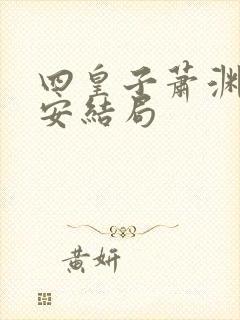 四皇子萧渊
安结局
黄妍